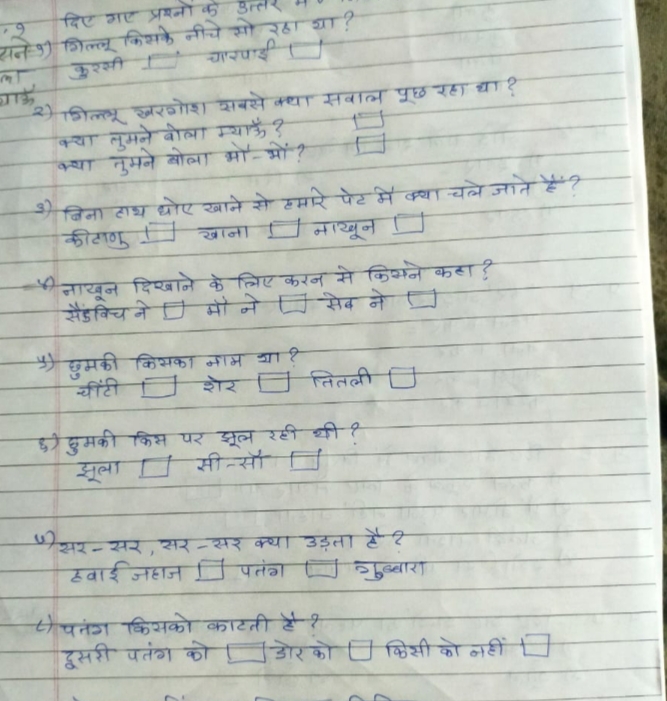 दिए गए प्रश्नों के उत्तर
१) गिल्लू किसके नीचे सो रहा था?
कुरसी चारपाई
२) गिल्लू खरगोश सबसे क्या सवाल पूछ रहा था?
क्या तुमने बोला म्याऊँ?
क्या तुमने बोला भौं-भों?
३) बिना हाथ धोए खाने से हमारे पेट में क्या चले जाते हैं?
कीटाणु खाना नाखून
४) नाखून दिखाने के लिए करन से किसने कहा?
सैंडविच ने माँ ने सेब ने
५) छुमकी किसका नाम था?
चींटी शेर तितली
६) छुमकी किस पर झूल रही थी?
झूला सी-सौ
७) सर-सर, सर-सर क्या उड़ता है?
हवाई जहाज पतंग गुब्बारा
८) पतंग किसको काटती है?
दूसरी पतंग को डोर को किसी को नहीं